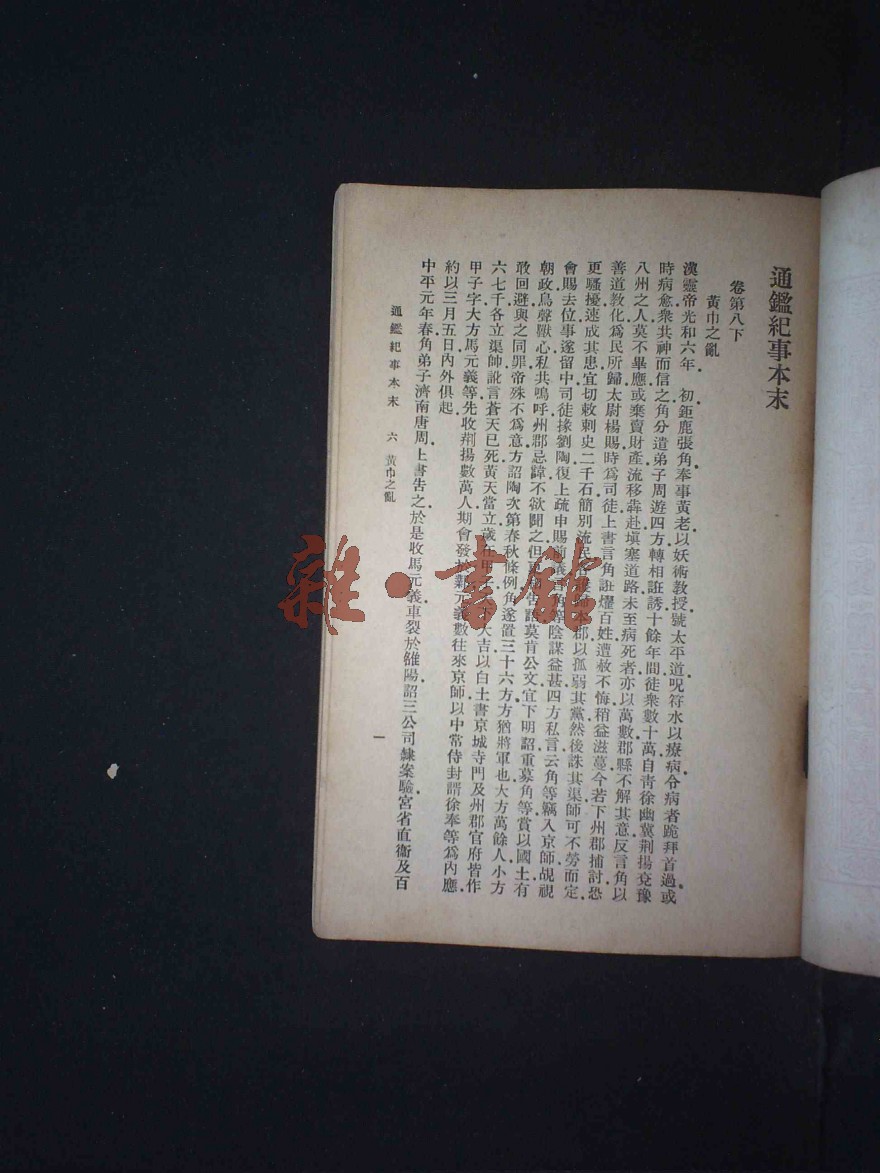 通鑑紀事本末
卷第八下
黃巾之亂
漢靈帝光和六年 初鉅鹿張角奉事黃老以妖術教授號太平道呪符水以療病令病者跪拜首過或
時病愈衆共神而信之角分遣弟子周遊四方轉相誑誘十餘年間徒衆數十萬自青徐幽冀荆揚兗豫
八州之人莫不畢應或棄賣財產流移犇赴塡塞道路未至病死者亦以萬數郡縣不解其意反言角以
善道教化爲民所歸太尉楊賜時爲司徒上書言角誑燿百姓遭赦不悔稍益滋蔓今若下州郡捕討恐
更騷擾速成其患宜切敕刺史二千石簡別流民各護歸本郡以孤弱其黨然後誅其渠帥可不勞而定
會賜去位事遂留中司徒掾劉陶復上疏申賜前議言角等陰謀益甚四方私言云角等竊入京師覘視
朝政鳥聲獸心私共鳴呼州郡忌諱不欲聞之但更相告語莫肯公文宜下明詔重募角等賞以國土有
敢回避與之同罪帝殊不爲意方詔陶次第春秋條例角遂置三十六方方猶將軍也大方萬餘人小方
六七千各立渠帥訛言蒼天已死黃天當立歲在甲子天下大吉以白土書京城寺門及州郡官府皆作
甲子字大方馬元義等先收荆揚數萬人期會發於鄴元義數往來京師以中常侍封諝徐奉等爲內應
約以三月五日內外俱起
中平元年春角弟子濟南唐周上書告之於是收馬元義車裂於雒陽詔三公司隸案驗宮省直衞及百
通鑑紀事本末 六 黃巾之亂
一
雜·書館